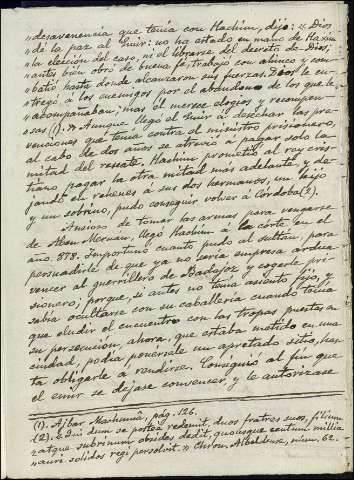 «desavenencia que tenía con Hachim, dijo: «Dios
«dé la paz al Emir: no ha estado en mano de Haxim
«la elección del caso, ni el librarse del decreto de Dios;
«antes bien obró de buena fe, trabajó con ahinco y com-
«batió hasta donde alcanzaron sus fuerzas. Dios le en-
«tregó a los enemigos por el abandono de los que le
«acompañaban; mas él merece elogios y recompen-
«sas (1).» Aunque llegó el Emir á desechar las pre-
venciones que tenía contra el ministro prisionero,
al cabo de dos años se atrevió á pagar solo la
mitad del rescate. Hachim prometió al rey cris-
tiano pagar la otra mitad mas adelante, y de-
jando en rehenes á sus dos hermanos, un hijo
y un sobrino, pudo conseguir volver á Córdoba (2).
Ansioso de tomar las armas para vengarse
de Aben Meruán, llegó Hachim á la corte en el
año 878. Importunó cuanto pudo al sultán, para
persuadirle de que ya no sería empresa ardua
vencer al guerrillero de Badajoz y cogerle pri-
sionero; porque, si antes no tenía asiento fijo, y
sabía ocultarse con su caballería cuando tenía
que eludir el encuentro con las tropas puestas en
su persecución, ahora, que estaba metido en una
ciudad, podía ponérsele un apretado sitio, has-
ta obligarle á rendirse. Consiguió al fin que
el emir se dejase convencer, y le autorizase
(1). Ajbar Machmuá, pág. 126.
(2). «Qui dum se postea redemit, duos fratres suos, filium
«atque subrinum obsides dedit, quousque centum millia
«auri solidos regi persolvit.» Chron. Albeldense, núm. 62.